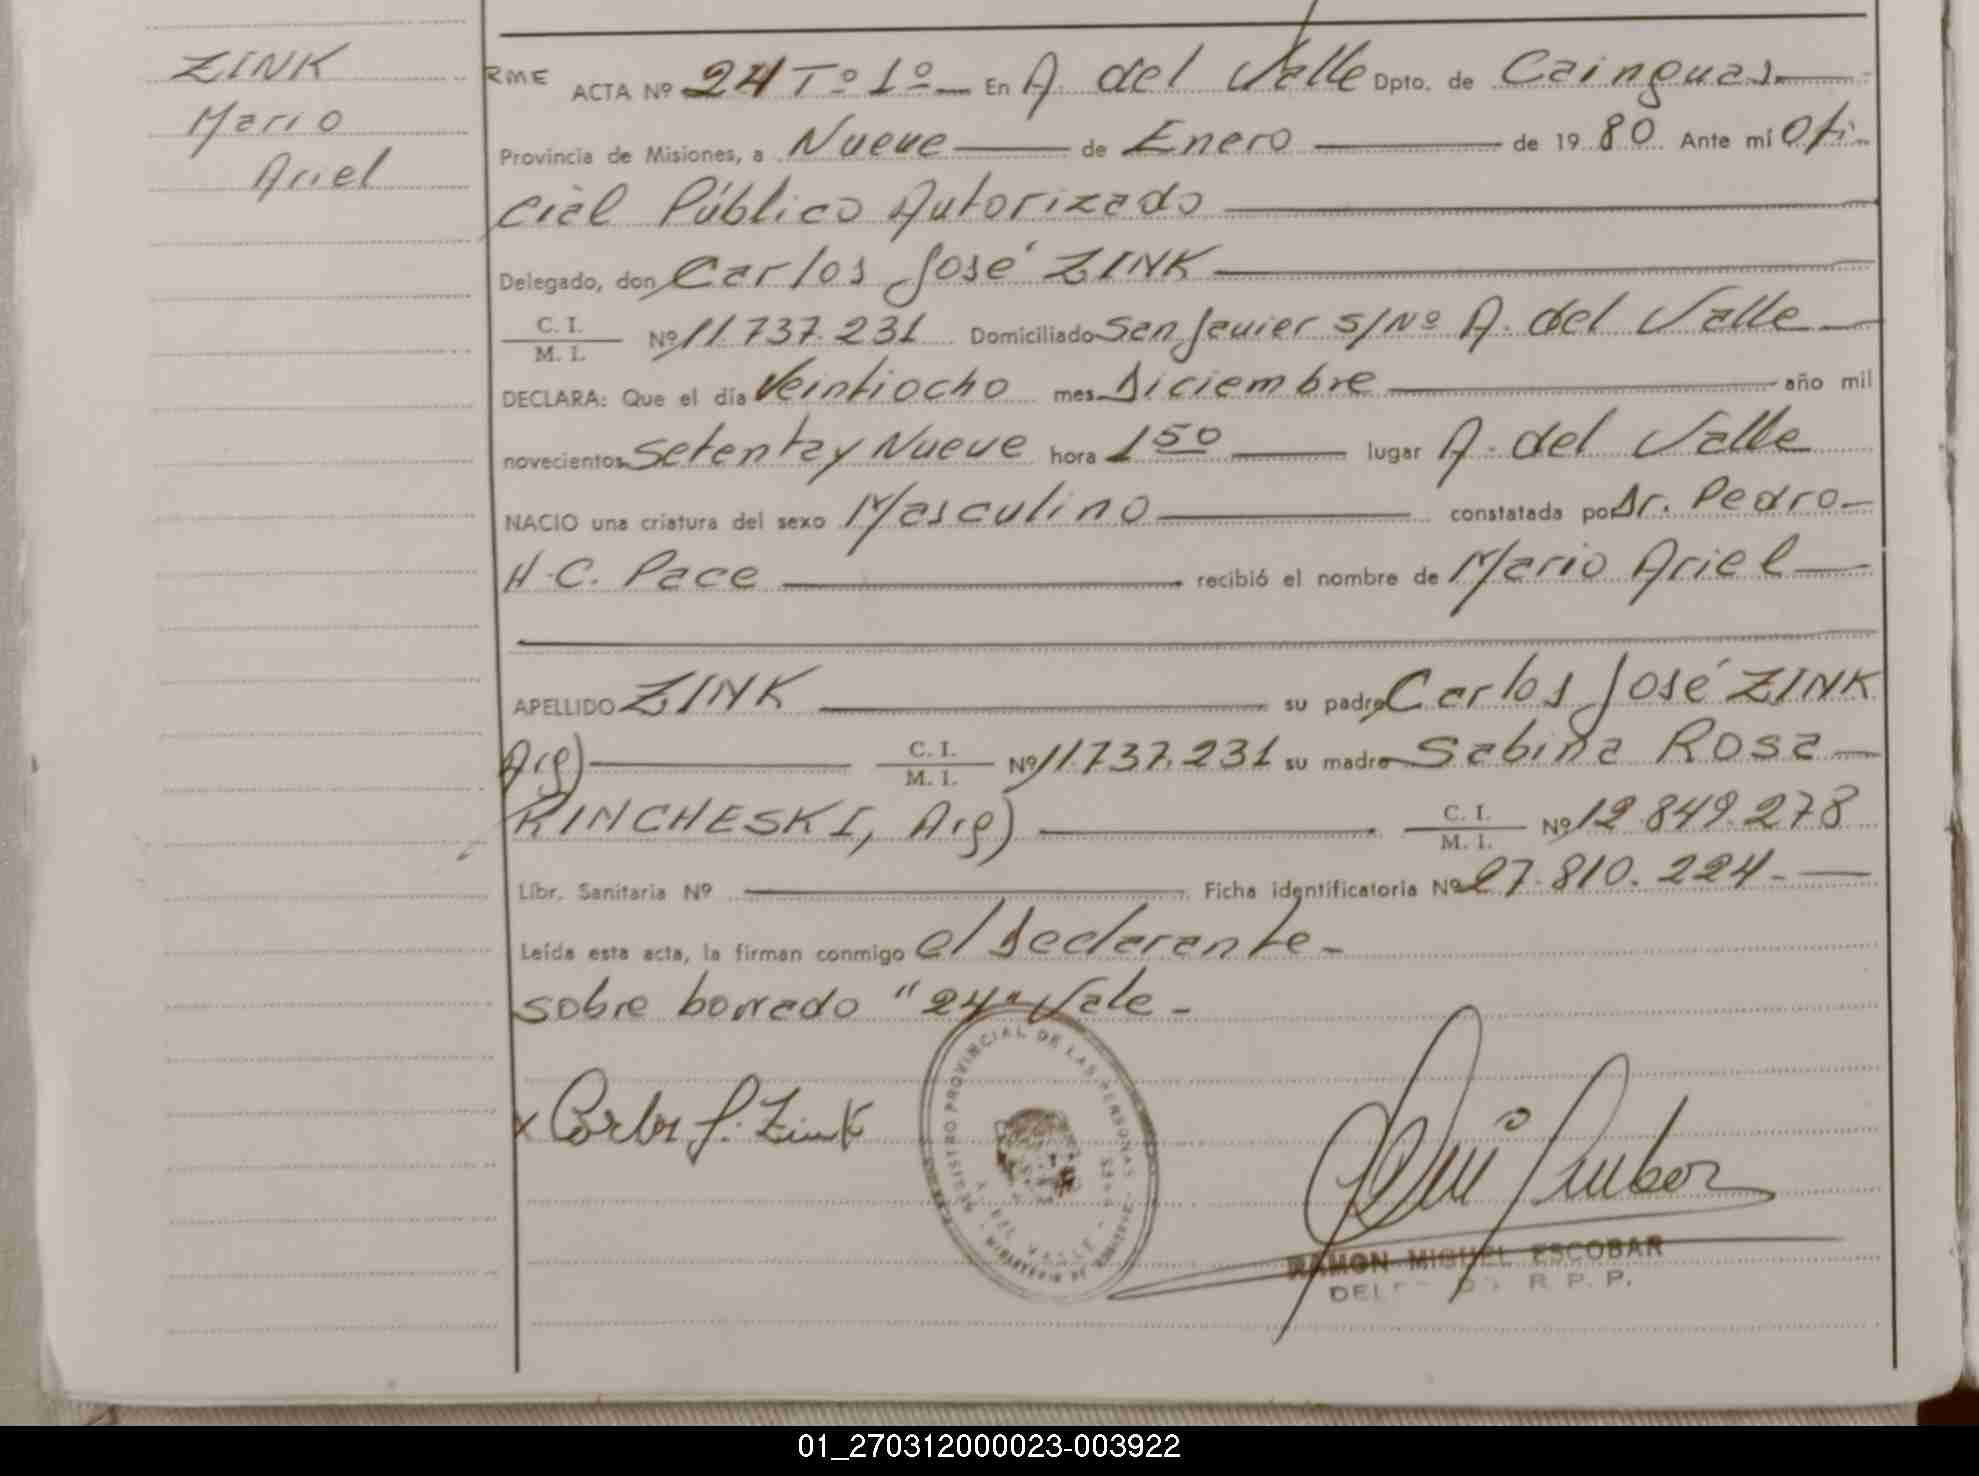 ZINK
Mario
Ariel
RME ACTA Nº 24 Tº 1º En A. del Valle Dpto. de Cainguas
Provincia de Misiones, a Nueve de Enero de 1980 Ante mí Ofi-
cial Público Autorizado
Delegado, don Carlos José ZINK
C. I. / M. I. Nº 11.737.231 Domiciliado San Javier S/Nº A. del Valle
DECLARA: Que el día Veintiocho mes Diciembre año mil
novecientos Setenta y Nueve hora 1 50 lugar A. del Valle
NACIO una criatura del sexo Masculino constatada por Dr. Pedro
H.C. Pace recibió el nombre de Mario Ariel
APELLIDO ZINK su padre Carlos José ZINK
Arg) C. I. / M. I. Nº 11.737.231 su madre Sabina Rosa
KINCHESKI, Arg) C. I. / M. I. Nº 12.849.278
Libr. Sanitaria Nº Ficha identificatoria Nº 27.810.224.-
Leída esta acta, la firman conmigo el declarante -
sobre borrado "24" Vale -
REGISTRO PROVINCIAL DE LAS PERSONAS
A. DEL VALLE
x Carlos J. Zink
RAMON MIGUEL ESCOBAR
R. P. P.
01_270312000023-003922